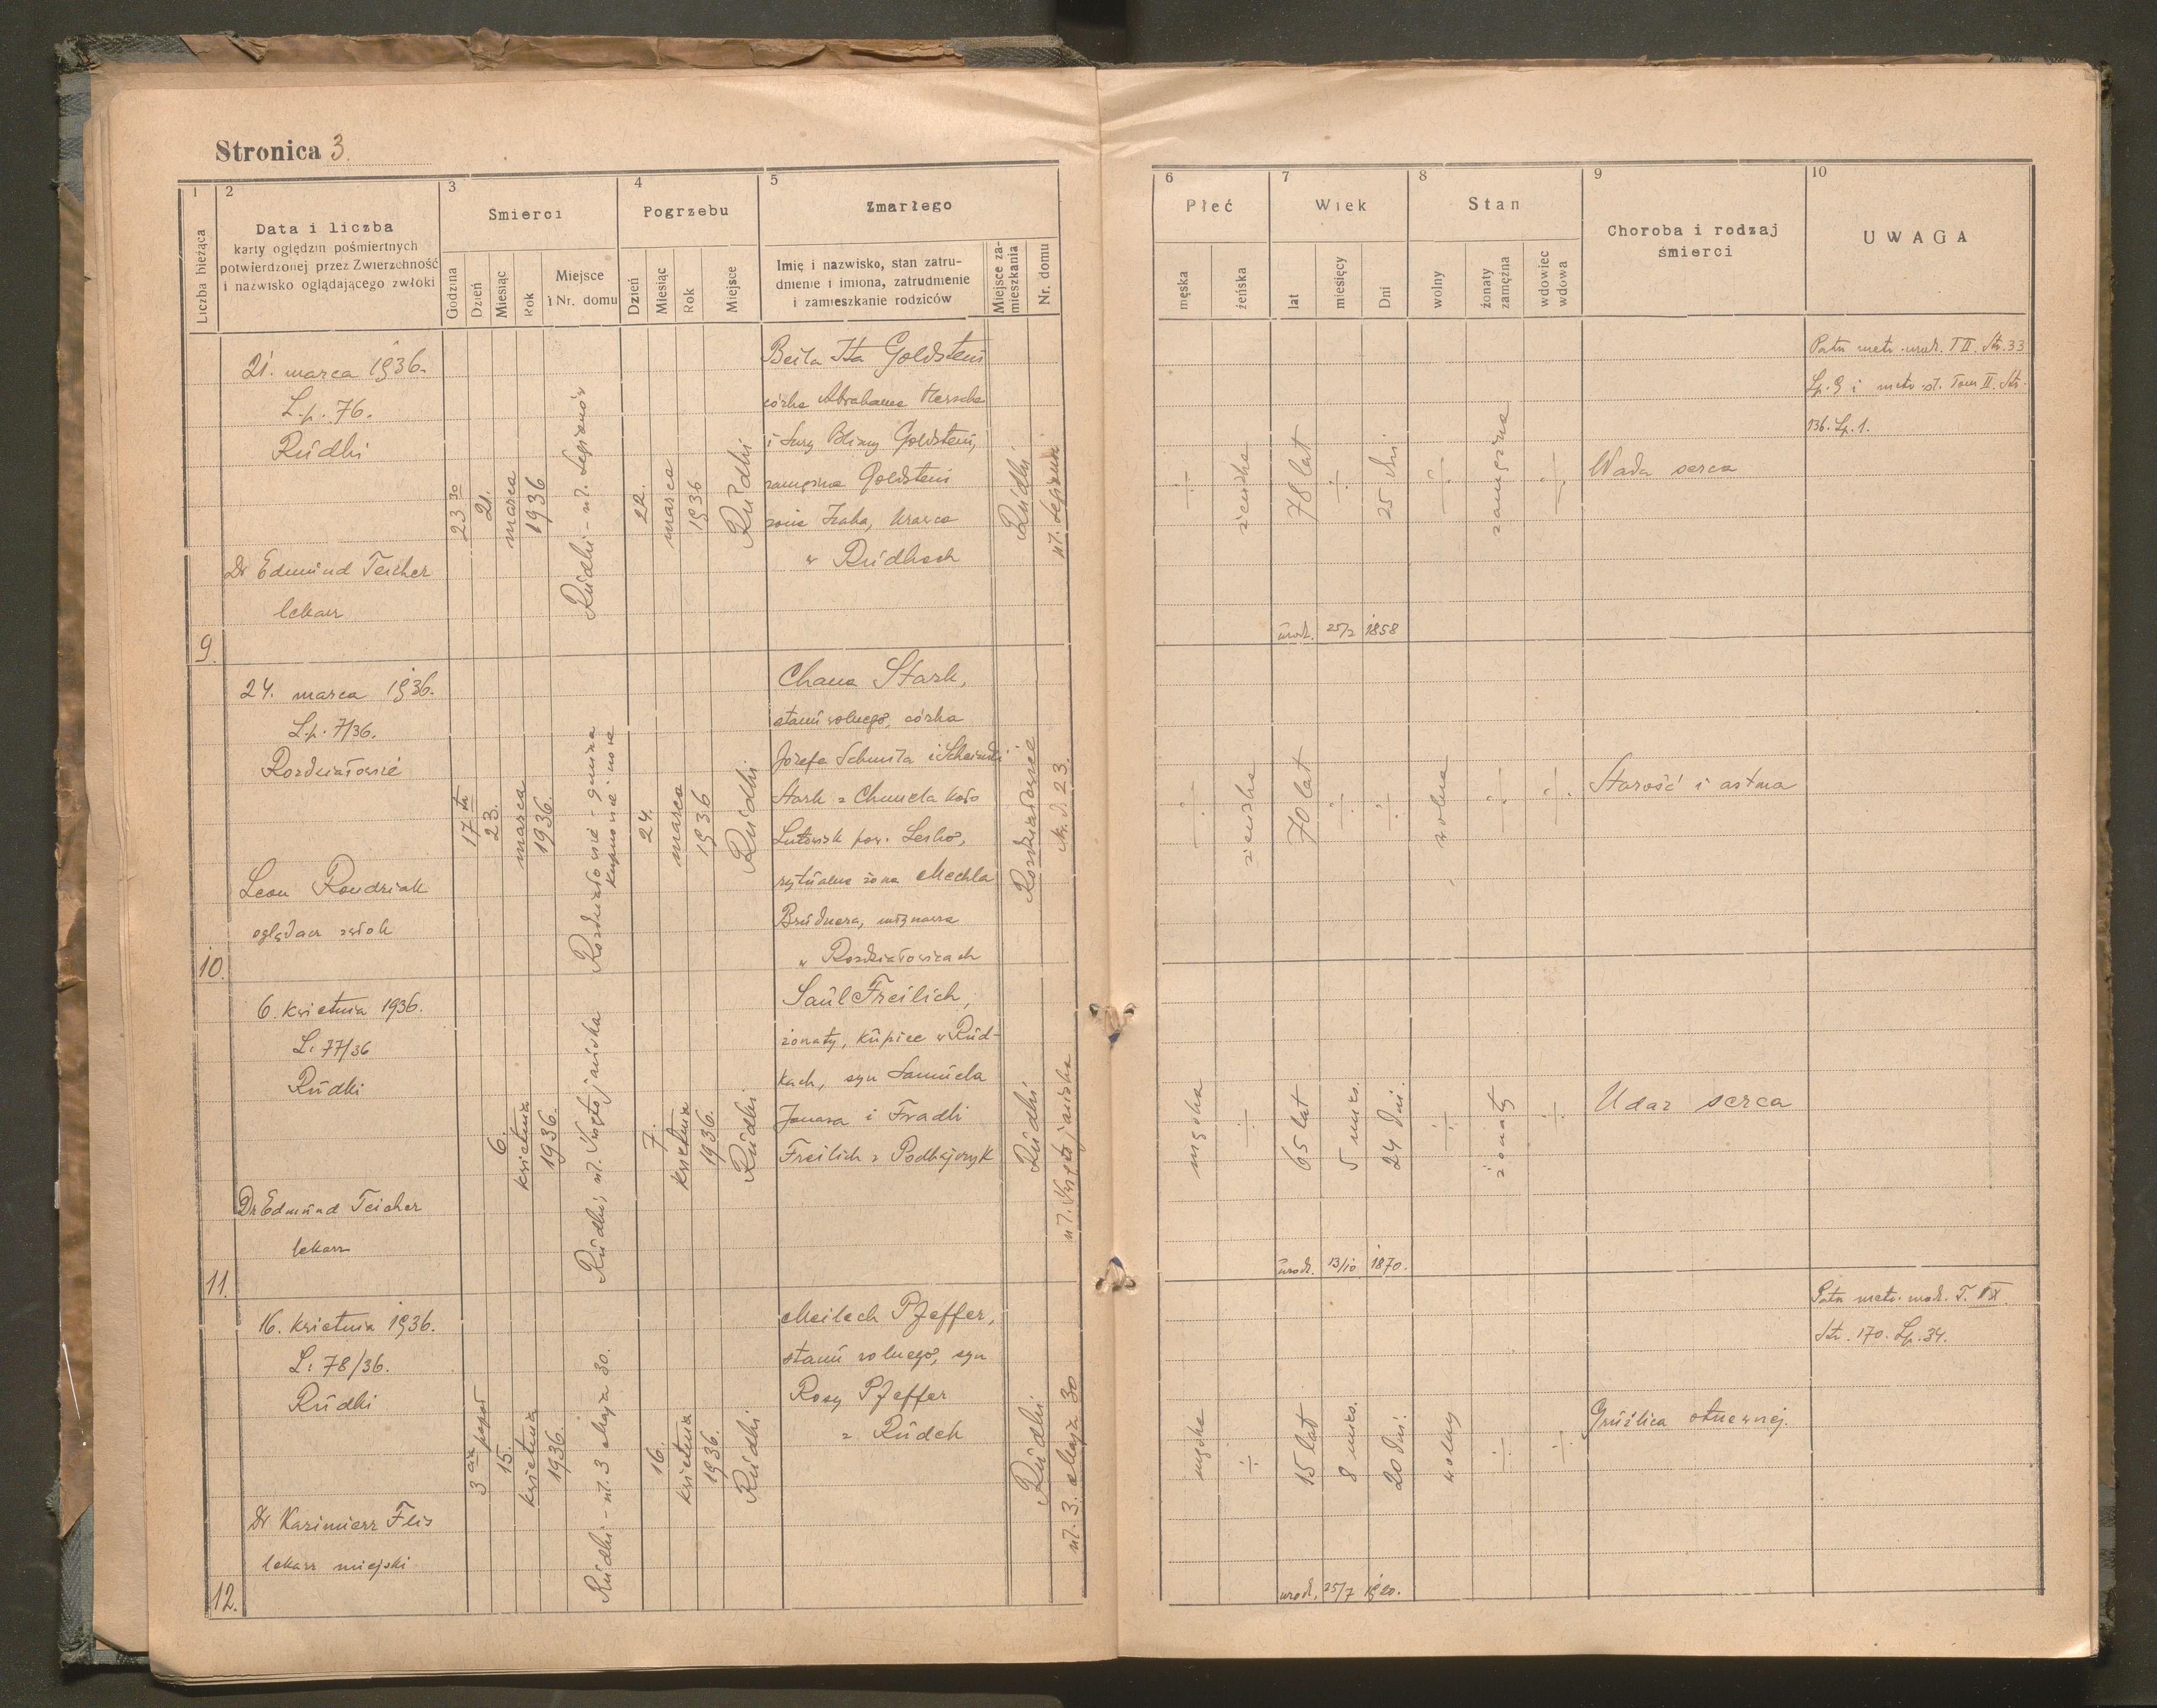 Stronica 3.
1
2
3
4
5
Liczba bieżąca
Data i liczba
karty oględzin pośmiertnych
potwierdzonej przez Zwierzchność
i nazwisko oglądającego zwłoki
Śmierci
Godzina
Dzień
Miesiąc
Rok
Miejsce
i Nr. domu
Pogrzebu
Dzień
Miesiąc
Rok
Miejsce
Zmarłego
Imię i nazwisko, stan zatru-
dnienie i imiona, zatrudnienie
i zamieszkanie rodziców
Miejsce za-
mieszkania
Nr. domu
6
7
8
9
10
Płeć
męska
żeńska
Wiek
lat
miesięcy
Dni
Stan
wolny
żonaty
zamężna
wdowiec
wdowa
Choroba i rodzaj
śmierci
UWAGA
9.
21. marca 1936.
L.p. 76.
Rudki
Dr Edmund Teicher
lekarz
23 30
21.
marca
1936
Rudki - ul. Legionów
22.
marca
1936
Rudki
Beila Ita Goldstein
córka Abrahama Herscha
i Sury Blimy Goldstein,
zamężna Goldstein
żona Izaka, krawca
w Rudkach
Rudki
ul. Legionów
÷
żeńska
78 lat
÷
25 dni
÷
zamężna
÷
urodz. 25/2 1858
Wada serca
Patrz metr. urodz. T II. Str. 33
Lp. 9 i metr. śl. Tom II. Str.
136. Lp. 1.
10.
24. marca 1936.
L.p. 7/36.
Rozdziałowice
Leon Rondziak
oglądacz zwłok
17 ta
23.
marca
1936.
Rozdziałowice - gmina
Kupnowice nowe
24.
marca
1936
Rudki
Chana Stark,
stanu wolnego, córka
Józefa Schmila i Scheindli
Stark z Chmiela koło
Lutowisk pow. Lesko,
rytualna żona Mechla
Brudnera, młynarza
w Rozdziałowicach
Rozdziałowice
Nr. d. 23.
÷
żeńska
70 lat
÷
÷
wolna
÷
÷
Starość i astma
11.
6. kwietnia 1936.
L. 77/36
Rudki
Dr Edmund Teicher
lekarz
6.
kwietnia
1936.
Rudki, ul. Świętojańska
7.
kwietnia
1936.
Rudki
Saul Freilich,
żonaty, kupiec w Rud-
kach, syn Samuela
Jonasa i Fradli
Freilich z Podhajczyk
Rudki
ul. Świętojańska
męska
÷
65 lat
5 mies.
24 dni.
÷
żonaty
÷
urodz. 13/10 1870.
Udar serca
12.
16. kwietnia 1936.
L. 78/36.
Rudki
Dr Kazimierz Flis
lekarz miejski
3 cia popoł
15.
kwietnia
1936.
Rudki - ul. 3 Maja 30.
16.
kwietnia
1936.
Rudki
Meilech Pfeffer,
stanu wolnego, syn
Rosy Pfeffer
z Rudek
Rudki
ul. 3. Maja 30
męska
÷
15 lat
8 mies.
20 dni.
wolny
÷
÷
urodz. 25/7 1920.
Gruźlica otrzewnej.
Patrz metr. urodz. T.
Str. 170. Lp. 34.